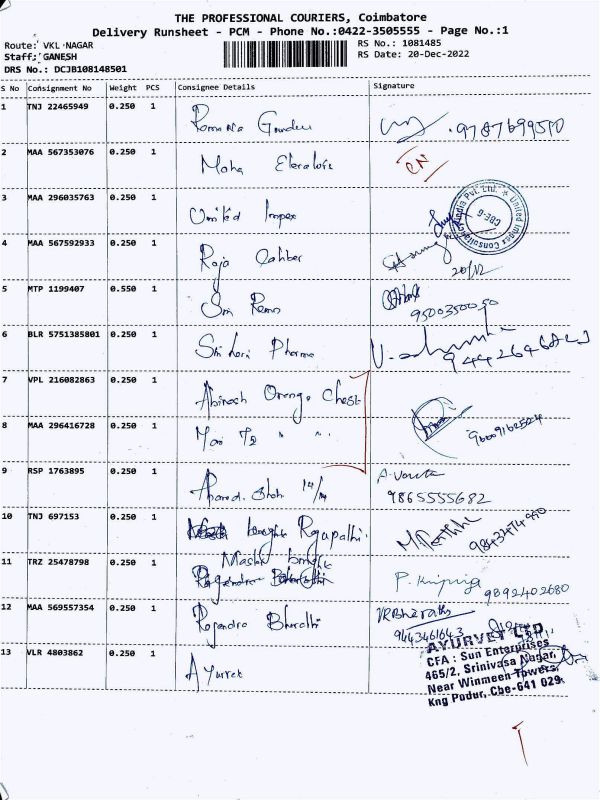 THE PROFESSIONAL COURIERS, Coimbatore
Delivery Runsheet - PCM - Phone No.:0422-3505555 - Page No.:1
Route: VKL NAGAR
RS No.: 1081485
Staff: GANESH
RS Date: 20-Dec-2022
DRS No.: DCJB108148501
S No Consignment No Weight PCS Consignee Details Signature
1 TNJ 22465949 0.250 1
9787699590
2 MAA 567353076 0.250 1 Maha
CN
3 MAA 296035763 0.250 1 United Impex
United Impex Consultancy India Pvt. Ltd.
CBE-6
4 MAA 567592933 0.250 1 Raja
20/12
5 MTP 1199407 0.550 1 Sri
9500350050
6 BLR 5751385801 0.250 1 Sri Hari Pharma
7 VPL 216082863 0.250 1 Abinash Orange Chest
8 MAA 296416728 0.250 1
9 RSP 1763895 0.250 1
9865555682
10 TNJ 697153 0.250 1
11 TRZ 25478798 0.250 1
9892402680
12 MAA 569557354 0.250 1 Rajendra Bharathi
VRBharathi
9443461643
13 VLR 4803862 0.250 1 Ayurvet
AYURVET LTD
CFA : Sun Enterprises
465/2, Srinivasa Nagar,
Near Winmeen Towers,
Kng Pudur, Cbe-641 029.